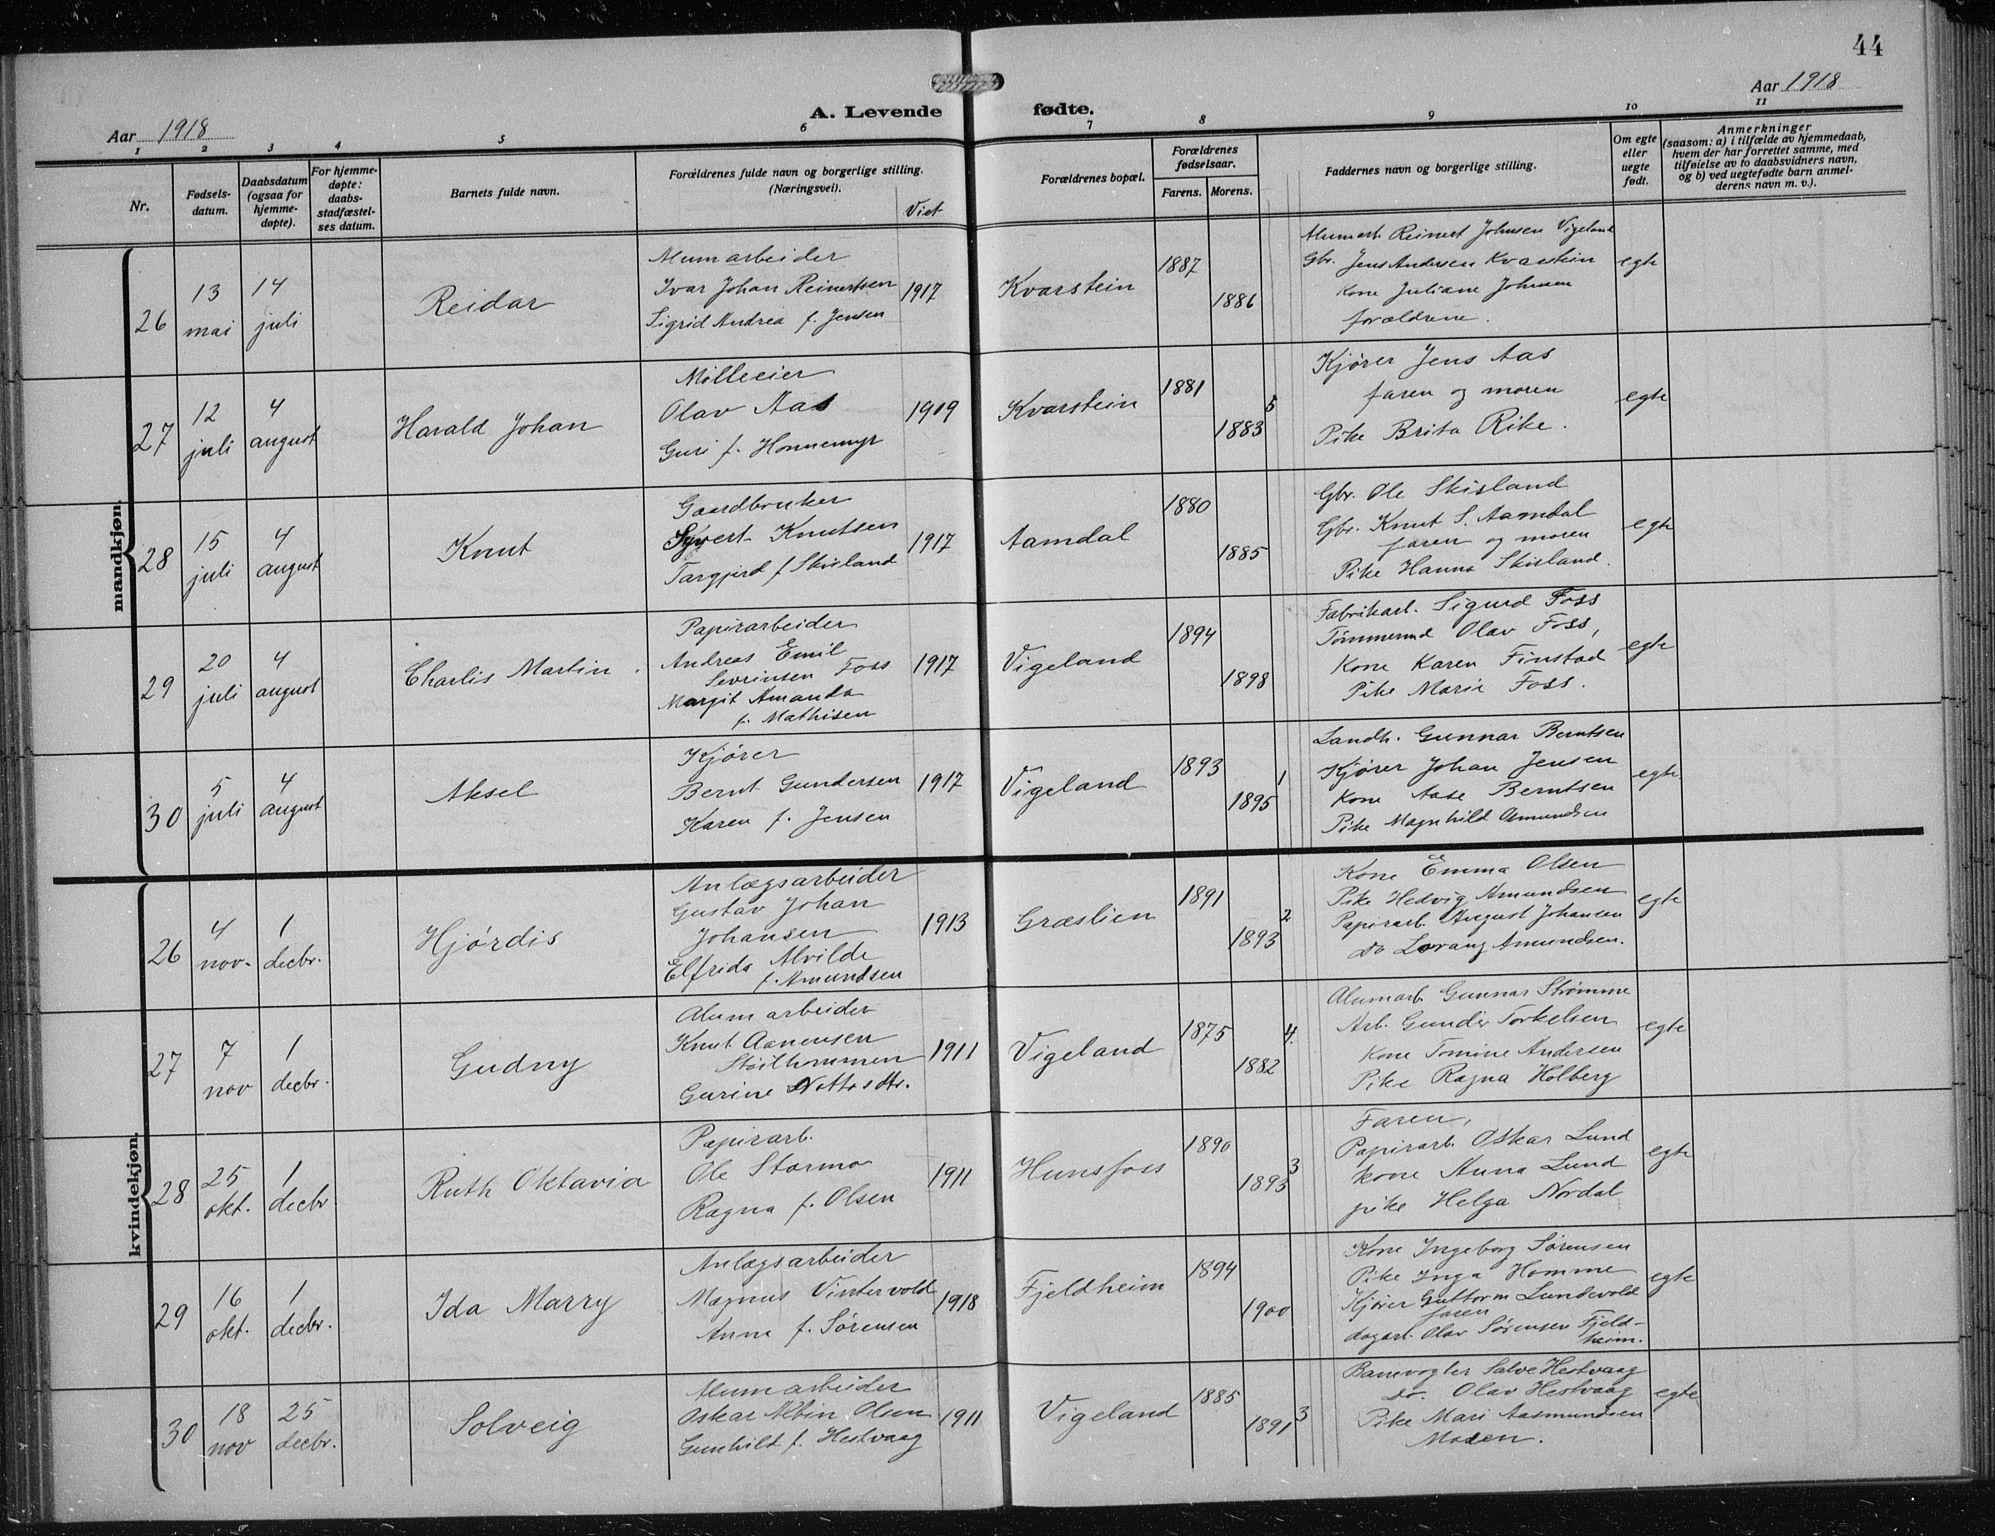 44
Aar 1918
A. Levende fødte.
Aar 1918
1 2 3 4 5 6 7 8 9 10 11
Nr.
Fødsels-
datum.
Daabsdatum
(ogsaa for
hjemme-
døpte).
For hjemme-
døpte:
daabs-
stadfæstel-
ses datum.
Barnets fulde navn.
Forældrenes fulde navn og borgerlige stilling.
(Næringsvei).
Viet
Forældrenes bopæl.
Forældrenes
fødselsaar.
Farens. Morens.
Faddernes navn og borgerlige stilling.
Om egte
eller
uegte
født.
Anmerkninger
(saasom: a) i tilfælde av hjemmedaab,
hvem der har forrettet samme, med
tilføielse av to daabsvidners navn,
og b) ved uegtefødte barn anmel-
derens navn m. v.).
mandkjøn.
26
13
mai
14
juli
Reidar
Alumarbeider
Ivar Johan Reinertsen
Sigrid Andrea f. Jensen
1917
Kvarstein
1887
1886
Alumarb. Reinert Johnsen Vigeland
Gbr. Jens Andersen Kvarstein
Kone Juliane Johnsen
forældrene.
egte
27
12
juli
4
august
Harald Johan
Mølleeier
Olav Aas
Guri f. Honnemyr
1909
Kvarstein
1881
1883
5
Kjører Jens Aas
faren og moren
Pike Brita Rike.
egte
28
15
juli
4
august
Knut
Gaardbruker
Syvert Knutsen
Targjerd f. Skisland
1917
Aamdal
1880
1885
Gbr. Ole Skisland
Gbr. Knut S. Aamdal
faren og moren
Pike Hanna Skisland.
egte
29
20
juli
4
august
Charlis Martin.
Papirarbeider
Andreas Emil
Sevrinsen Foss
Margit Amanda
f. Mathisen
1917
Vigeland
1894
1898
Fabrikarb. Sigurd Foss
Tømmermd Olav Foss,
Kone Karen Finstad
Pike Marie Foss.
egte
30
5
juli
4
august
Aksel
Kjører
Bernt Gundersen
Karen f. Jensen
1917
Vigeland
1893
1895
1
Landh. Gunnar Berntsen
Kjører Johan Jensen
Kone Aase Berntsen
Pike Magnhild Amundsen
egte
kvindekjøn.
26
4
nov.
1
decbr.
Hjørdis
Anlægsarbeider
Gustav Johan
Johansen
Elfrida Alvilde
f. Amundsen
1913
Græslien
1891
1893
2
Kone Emma Olsen
Pike Hedvig Amundsen
Papirarb. August Johansen
do Lorang Amundsen.
egte
27
7
nov
1
decbr.
Gudny
Alumarbeider
Knut Aanensen
Støilhommen
Gurine Nottosdtr.
1911
Vigeland
1875
1882
4.
Alumarb. Gunnar Strømme
Arb. Gunder Torkelsen
Kone Tomine Andersen
Pike Ragna Holberg
egte
28
25
okt.
1
decbr.
Ruth Oktavia
Papirarb.
Ole Stormo
Ragna f. Olsen
1911
Hunsfoss
1890
1893
3
Faren,
Papirarb. Oskar Lund
kone Anna Lund
pike Helga Nordal
egte
29
16
okt.
1
decbr.
Ida Marry
Anlægsarbeider
Magnus Vintervold
Anne f. Sørensen
1918
Fjeldheim
1894
1900
Kone Ingeborg Sørensen
Pike Inga Homme
Kjører Guttorm Lundevold
faren
dagarb. Olav Sørensen Fjeld-
heim.
egte
30
18
nov
25
decbr.
Solveig
Alumarbeider
Oskar Albin Olsen
Gunhilt f. Hestvaag
1911
Vigeland
1885
1891
3
Banevogter Salve Hestvaag
do. Olav Hestvaag
Pike Mari Aasmundsen
Moren.
egte